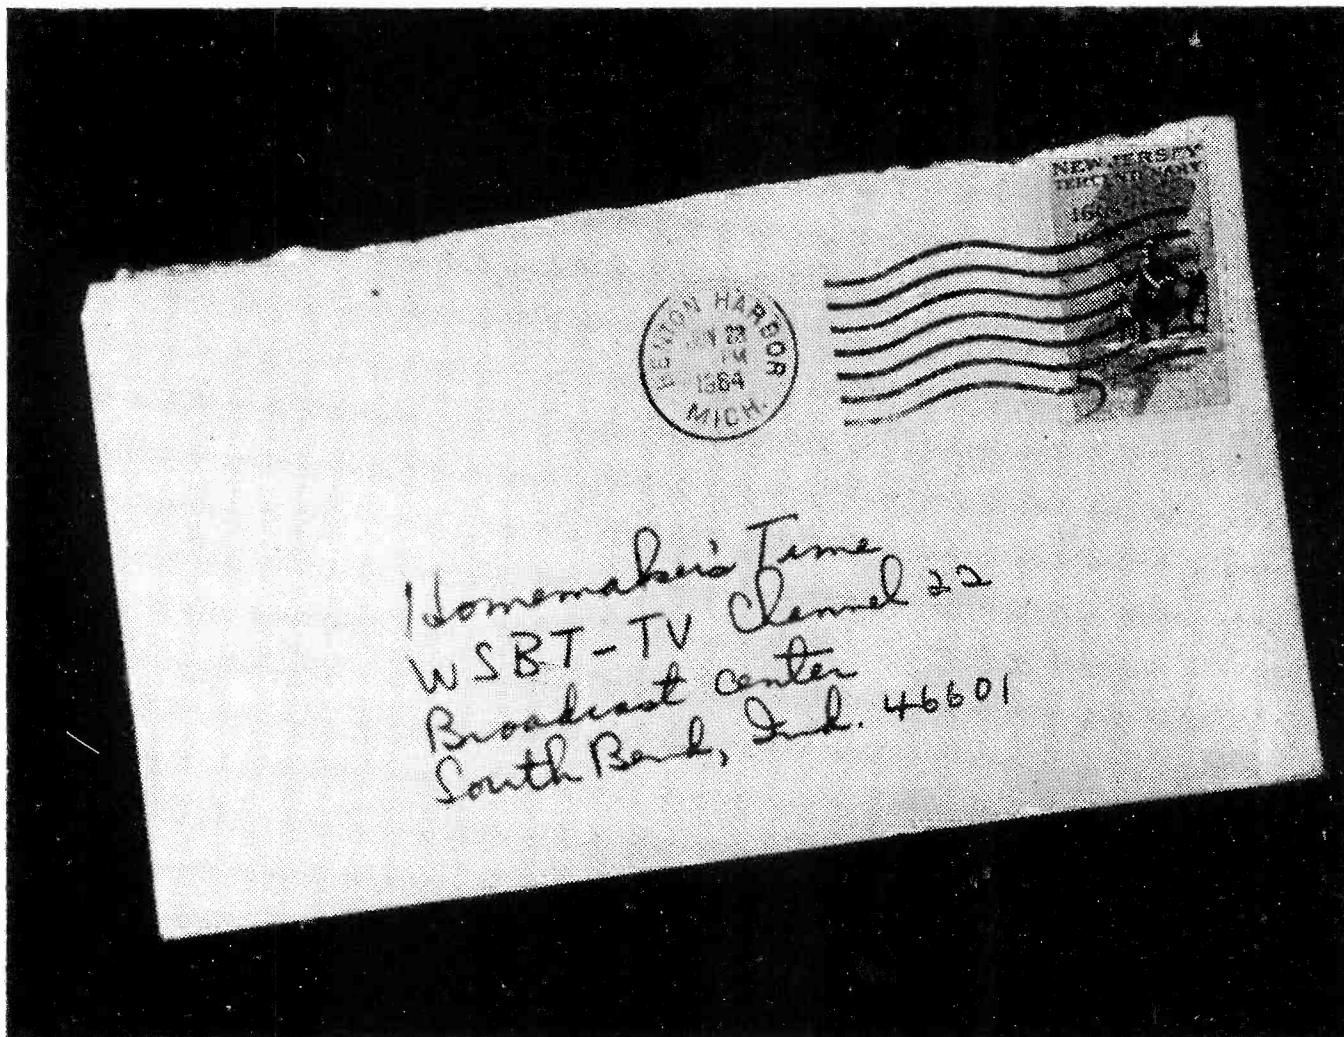 NEW JERSEY
TERCENTENARY
BENTON HARBOR
23
PM
1964
MICH.
Homemaker's Time
WSBT-TV Channel 22
Broadcast Center
South Bend, Ind. 46601